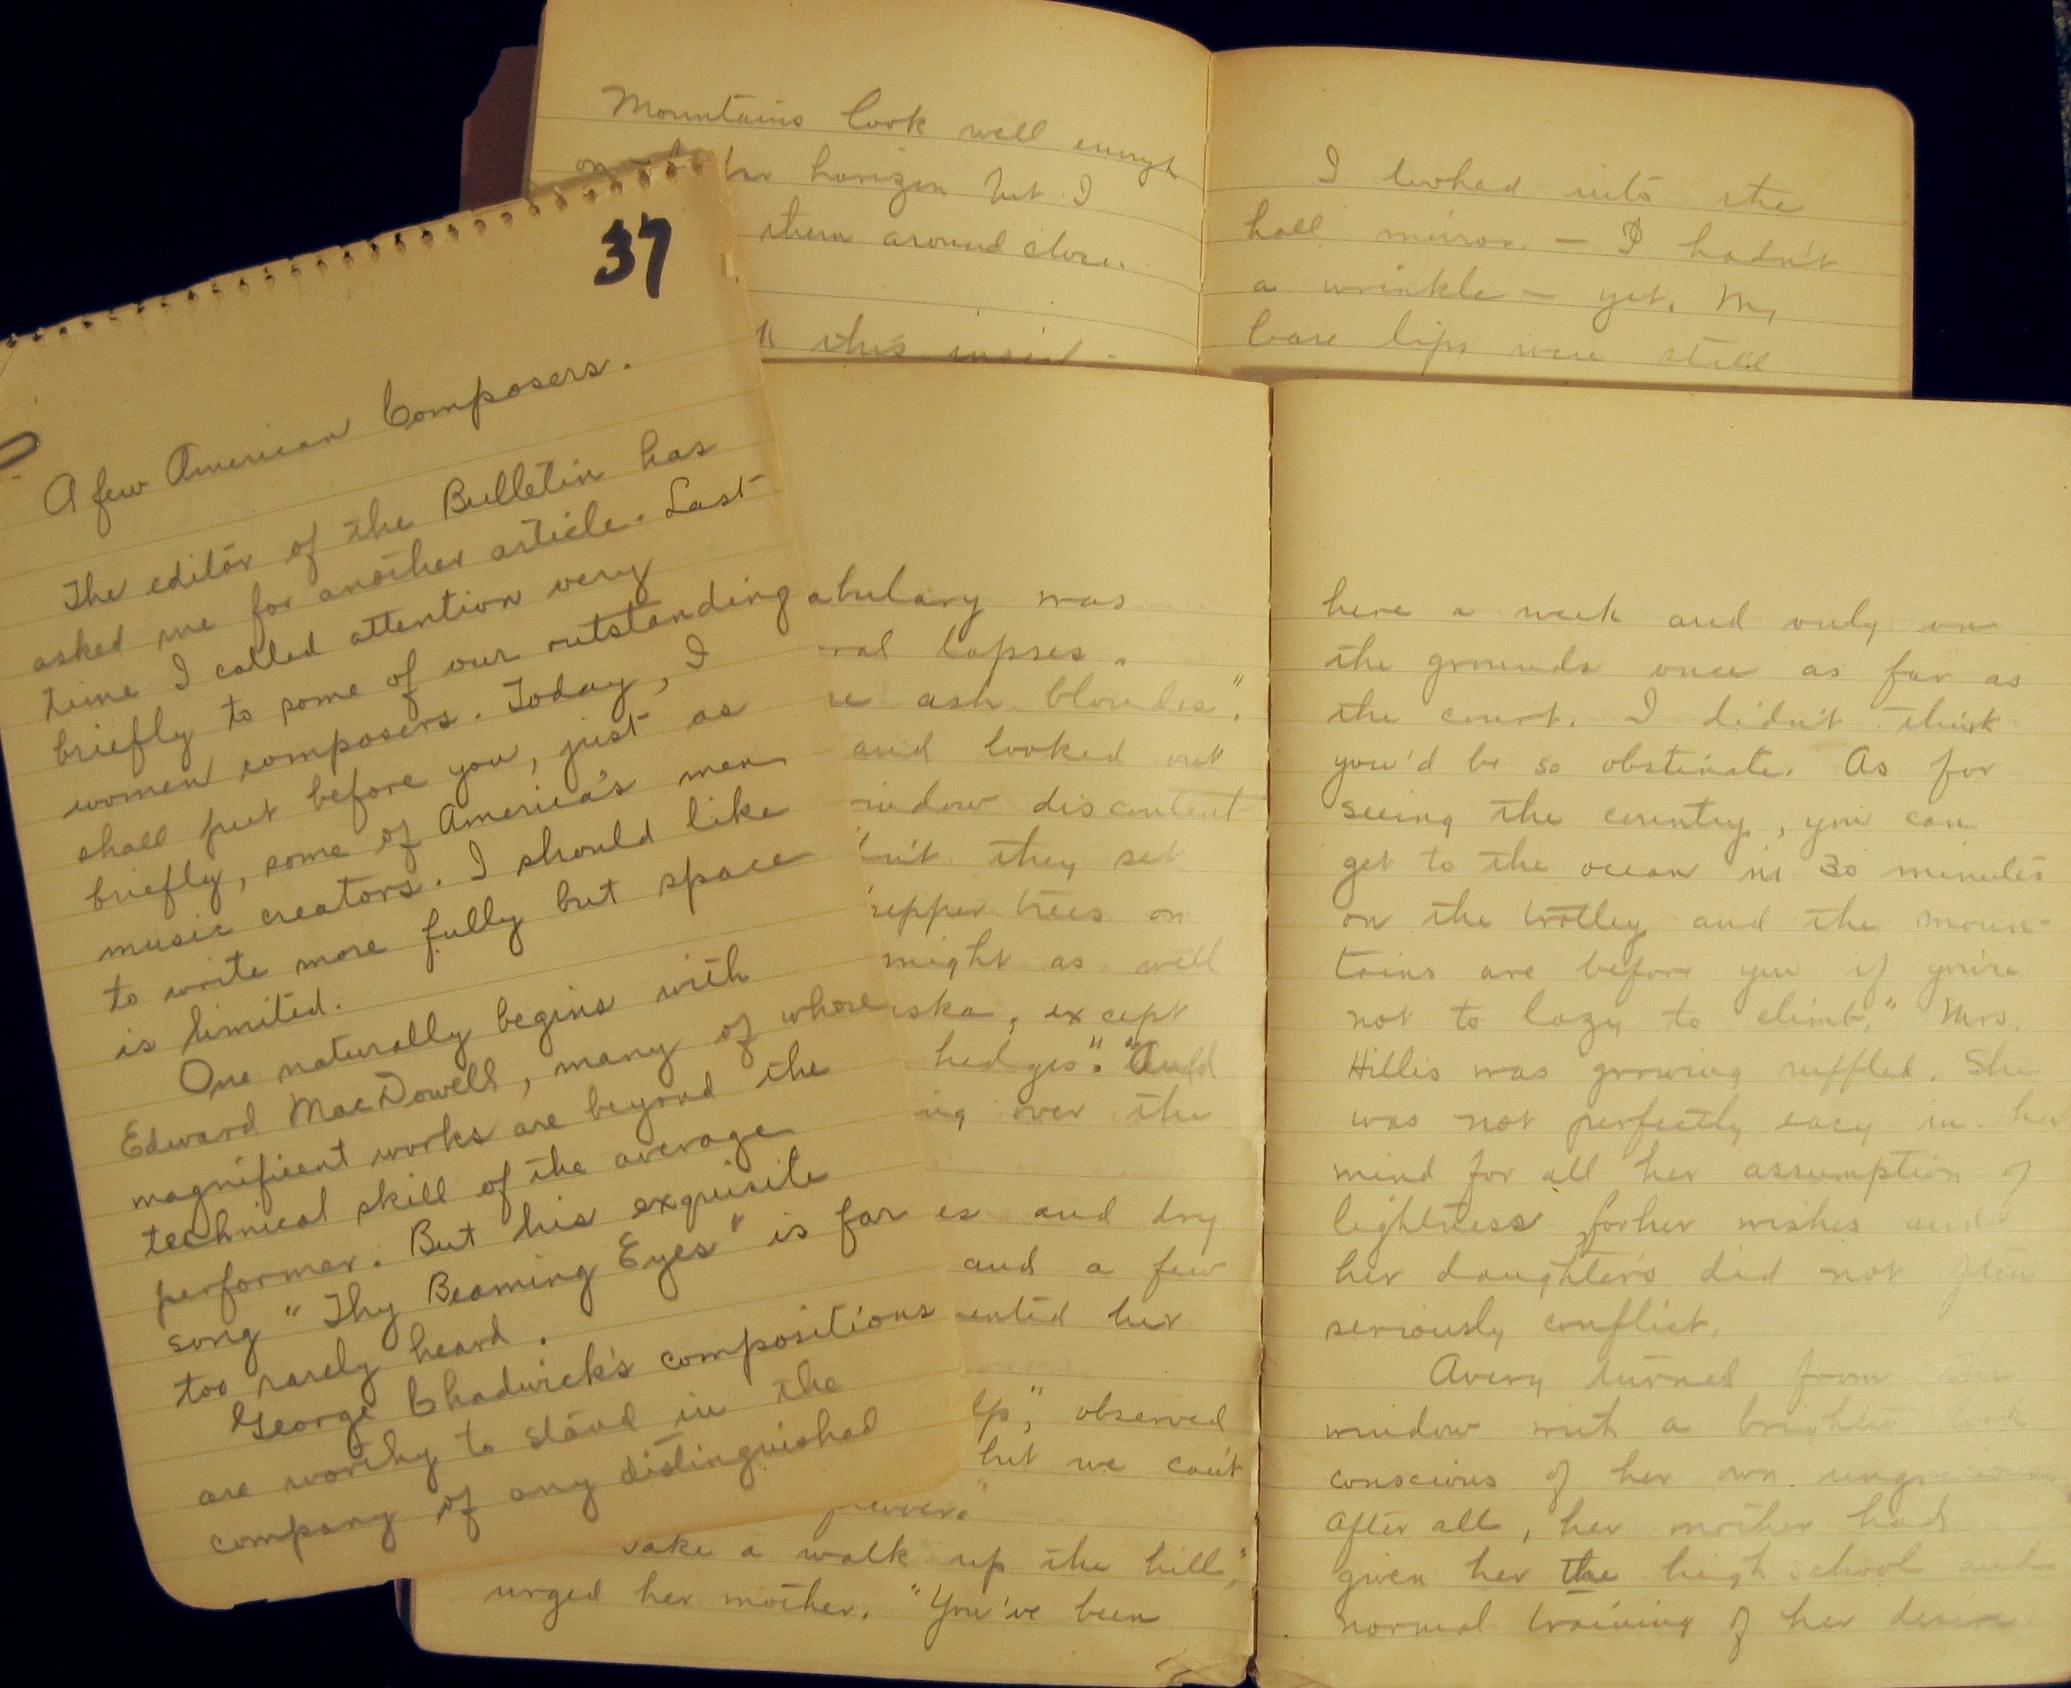 37
A few American Composers.
The editor of the Bulletin has
asked me for another article. Last
time I called attention very
briefly to some of our outstanding
women composers. Today, I
shall put before you, just as
briefly, some of America's men
music creators. I should like
to write more fully but space
is limited.
One naturally begins with
Edward MacDowell, many of whose
magnificent works are beyond the
technical skill of the average
performer. But his exquisite
song "Thy Beaming Eyes" is far
too rarely heard.
George Chadwick's compositions
are worthy to stand in the
company of any distinguished
Mountains look well enough
on horizon but I
them around close.
this
I looked into the
hall mirror. — I hadn't
a wrinkle — yet. My
bare lips were still
abulary was
ral lapses.
re ash blondes".
and looked out
indow discontent
n't they set
epper trees on
might as well
ska, except
hedges". "Audd
ing over the
es and dry
and a few
ented her
lp," observed
but we can't
ake a walk up the hill,"
urged her mother. "You've been
here a week and only on
the grounds once as far as
the court. I didn't think
you'd be so obstinate. As for
seeing the country, you can
get to the ocean in 30 minutes
on the trolley and the moun-
tains are before you if you're
not to lazy to climb," Mrs.
Hillis was growing ruffled. She
was not perfectly easy in her
mind for all her assumption of
lightness for her wishes and
her daughter's did not often
seriously conflict.
Avery turned from the
window with a brighter look
conscious of her own
After all, her mother had
given her the high school and
normal training of her desire